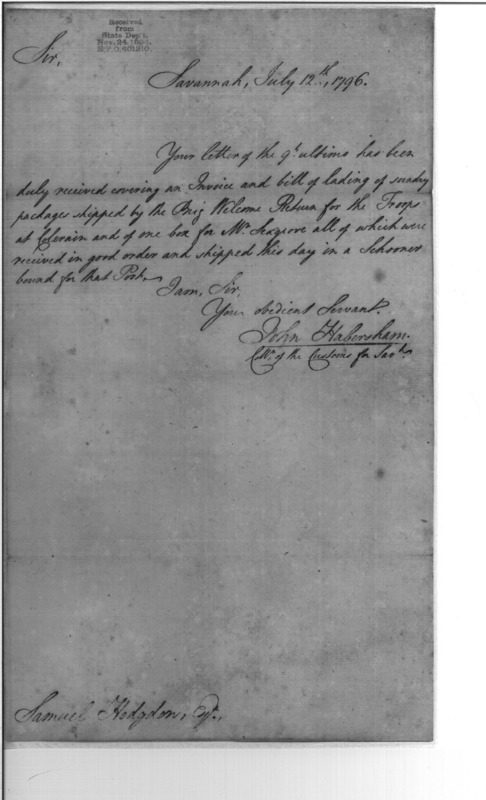 Received
from
State Dept.
Nov. 24, 1894.
Sir,
Savannah, July 12th, 1796.
Your letter of the 9th ultimo has been
duly received covering an Invoice and bill of lading of sundry
packages shipped by the Brig Welcome Return for the Troops
at Colerain and of one box for Mr. Seagrove all of which were
received in good order and shipped this day in a Schooner
bound for that Post.
I am, Sir,
Your obedient Servant.
John Habersham.
Collr. of the Customs for Savh.
Samuel Hodgdon, Esqr.,